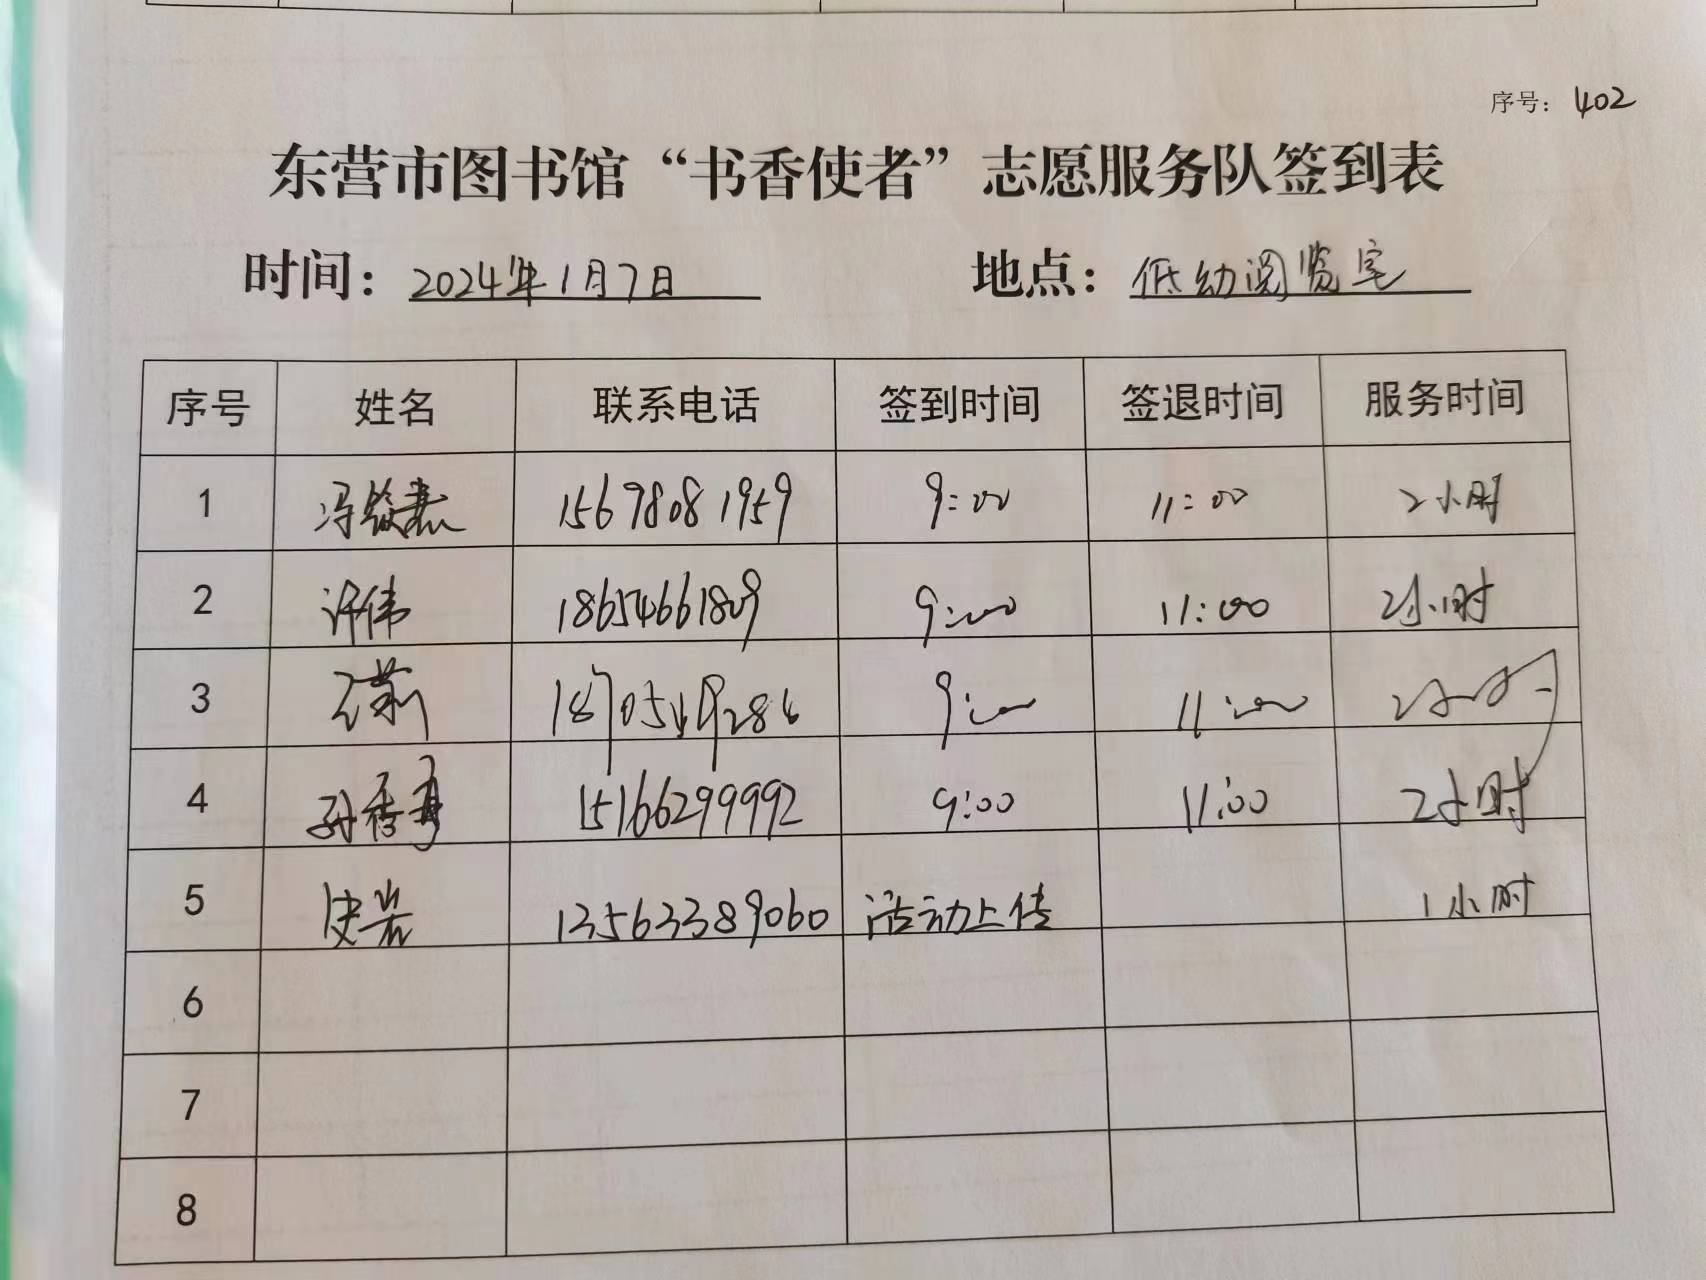 序号：402
东营市图书馆“书香使者”志愿服务队签到表
时间：2024年1月7日 地点：低幼阅览室
序号 姓名 联系电话 签到时间 签退时间 服务时间
1 15698081959 9:00 11:00 2小时
2 许伟 18654661809 9:00 11:00 2小时
3 9:00 11:00 2小时
4 15166299992 9:00 11:00 2小时
5 13563389060 活动上传 1小时
6
7
8